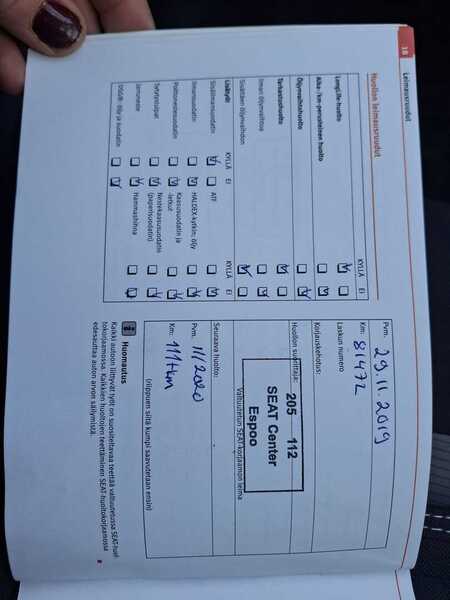 18
Leimausruudut
Huollon leimausruudut
KYLLÄ EI
LongLife-huolto
Aika-/km-perusteinen huolto
Öljynvaihtohuolto
Tarkastushuolto
Ilman öljynvaihtoa
Sisältäen öljynvaihdon
Lisätyöt KYLLÄ EI KYLLÄ EI
Sisäilmansuodatin ATF
Ilmansuodatin HALDEX-kytkin; öljy
Polttoainesuodatin Kaasusuodatin ja -letkut
Sytytystulpat Nestekaasusuodatin (paperisuodatin)
Jarruneste Hammashihna
DSG®: öljy ja suodatin
Pvm. 29.11.2019
Km: 81472
Laskun numero
Korjauskehotus:
Huollon suorittaja:
205 112
SEAT Center
Espoo
Valtuutetun SEAT-korjaamon leima
Seuraava huolto:
Pvm. 11/2020
Km: 111tkm
(riippuen siitä kumpi saavutetaan ensin)
Huomautus
Kaikki autoon liittyvät työt on suositeltavaa teettää valtuutetussa SEAT-huol-
tokorjaamossa. Kaikkien huoltojen teettäminen SEAT-huoltokorjaamossa
edesauttaa auton arvon säilymistä.